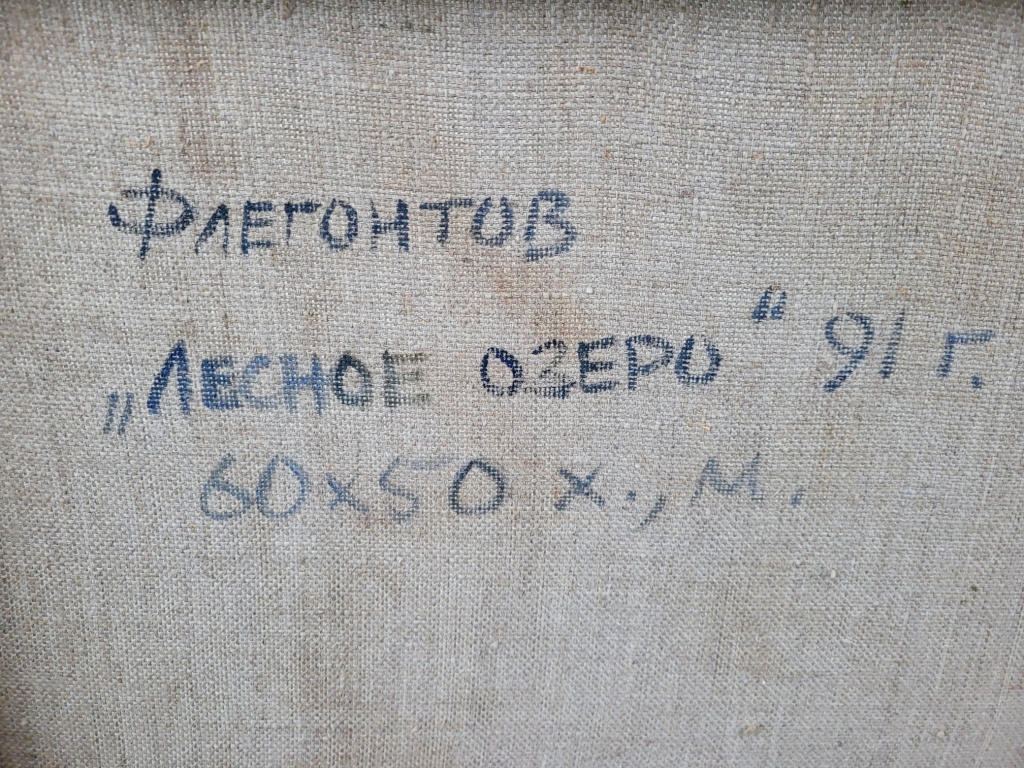 ФЛЕГОНТОВ
„ЛЕСНОЕ ОЗЕРО“ 91 г.
60х50 х., м.